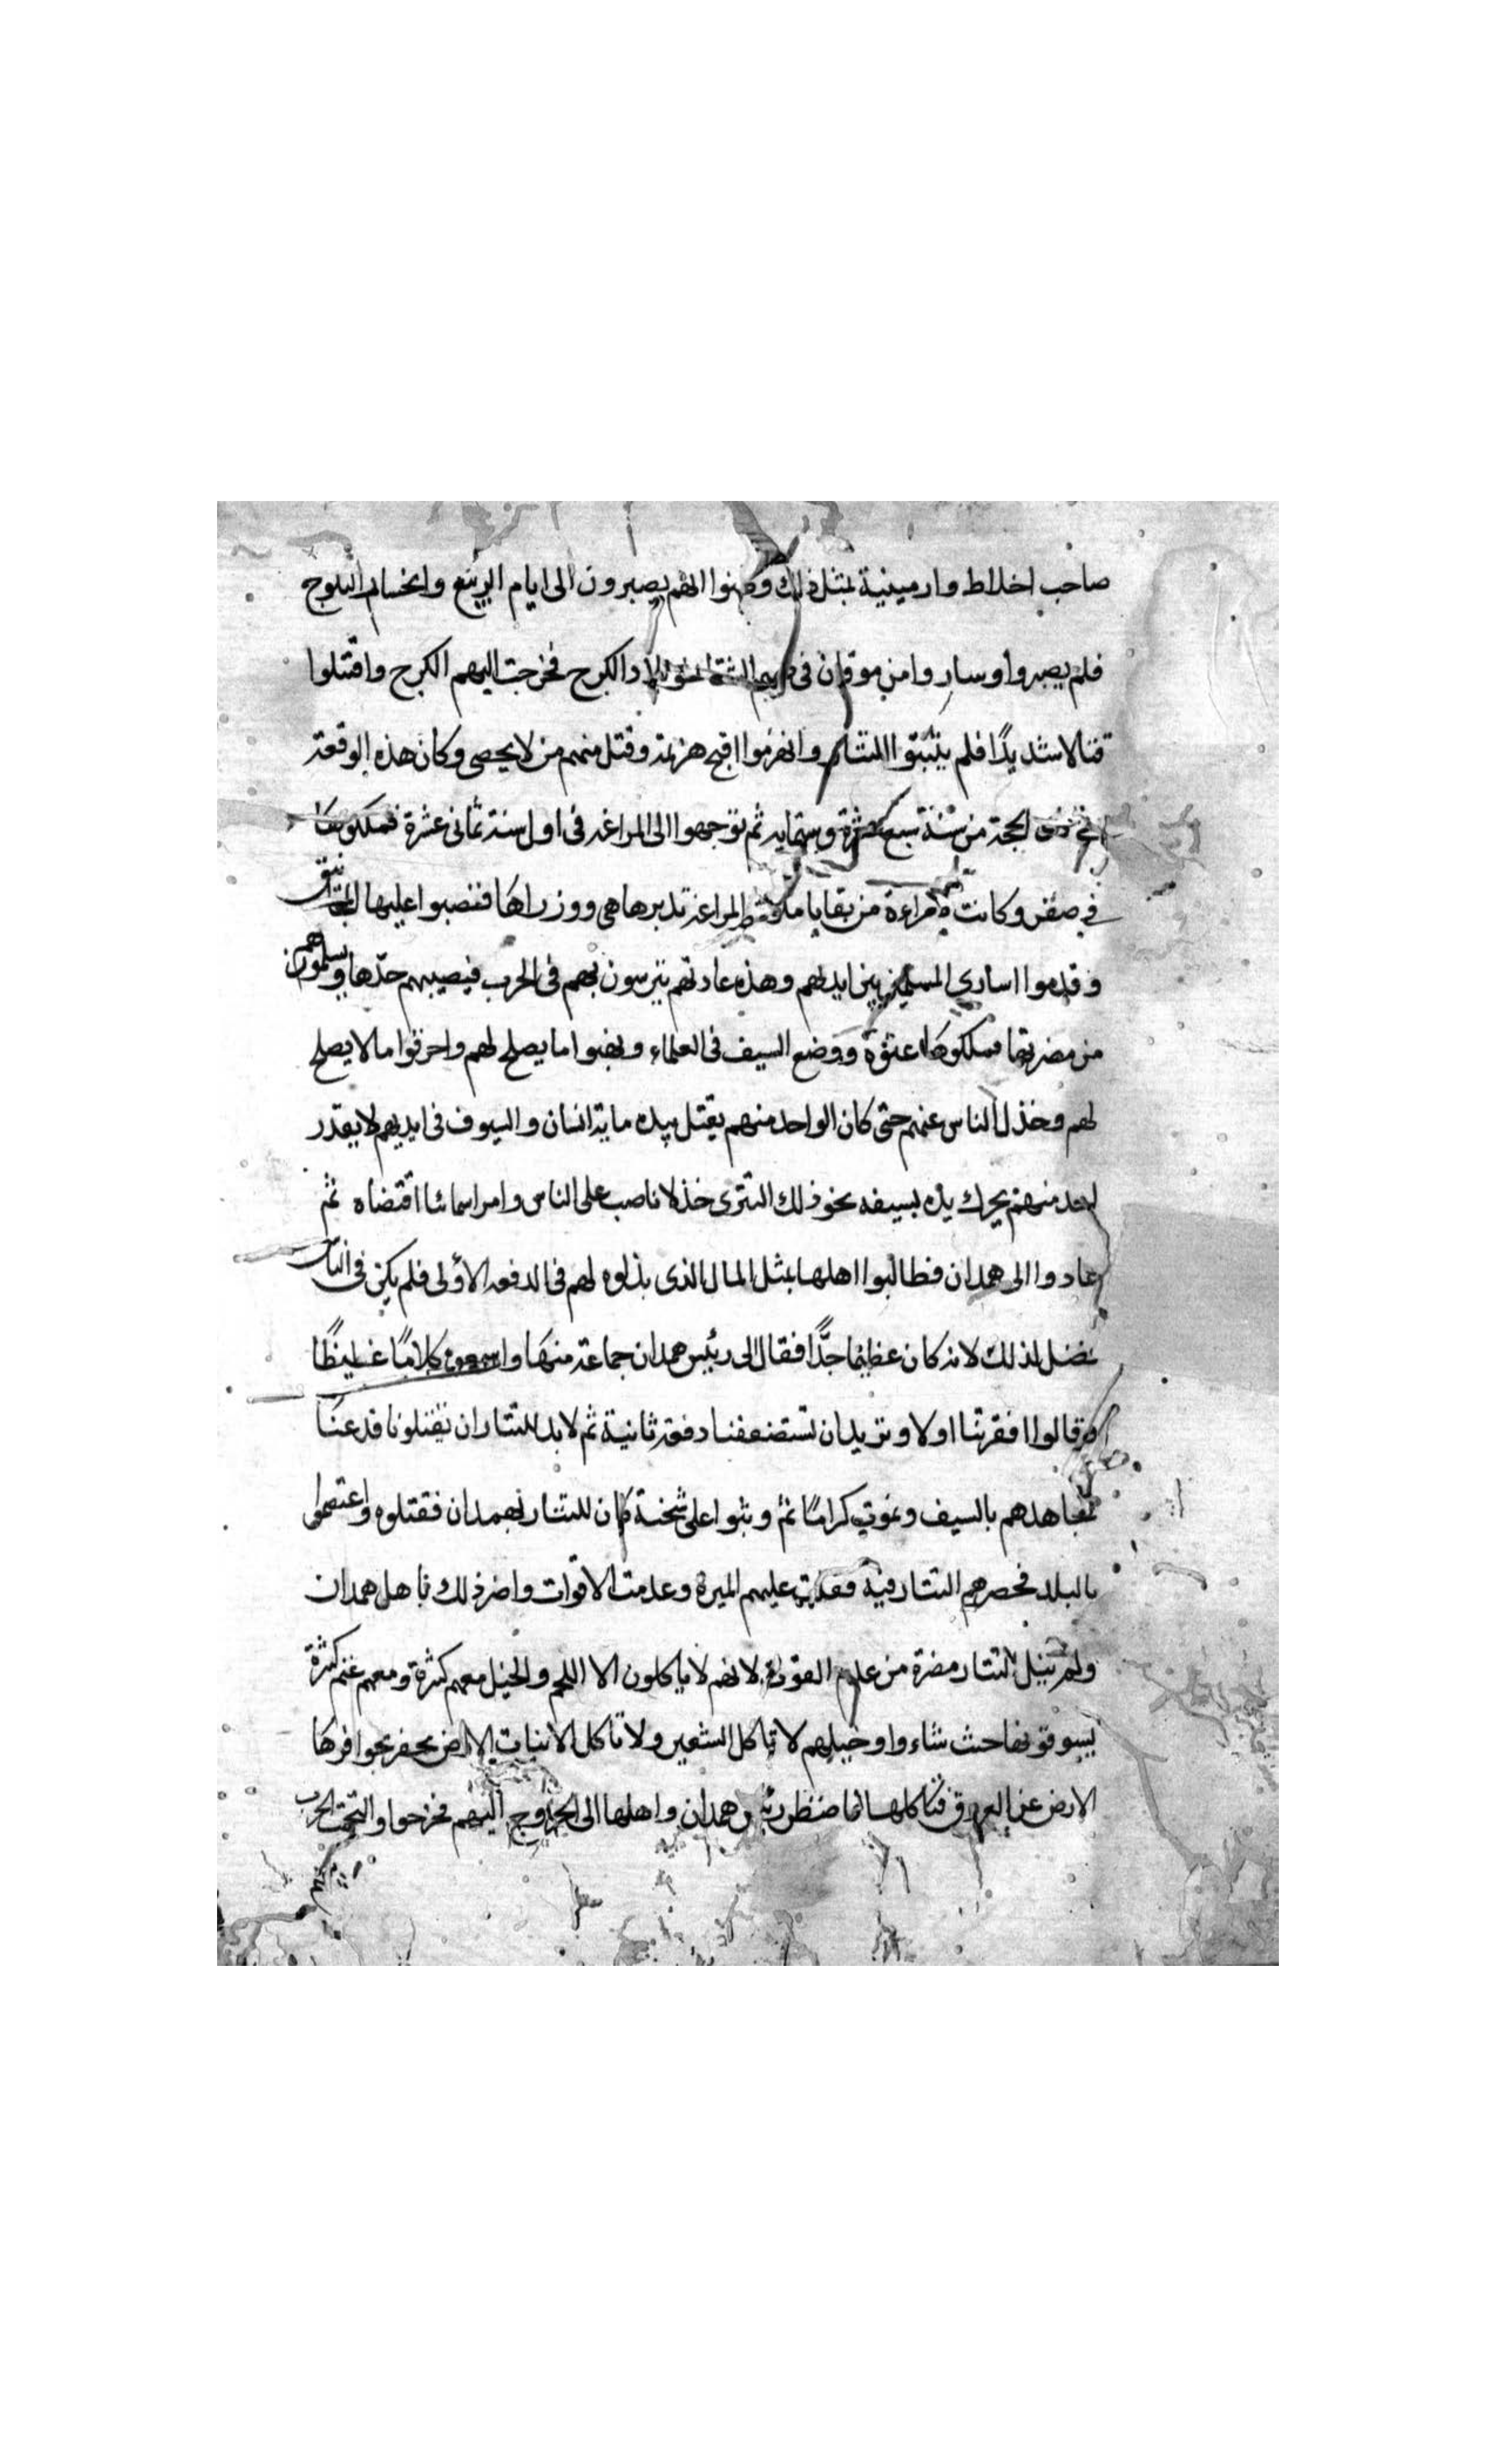 صاحب اخلاط وارمينية بمثل ذلك وظنوا انهم يصبرون الى ايام الربيع وانحسار الثلوج
فلم يصبروا وساروا من موقان في صميم الشتا نحو بلاد الكرج فخرجت اليهم الكرج واقتتلوا
قتالا شديدًا فلم يثبتوا للتتار وانهزموا اقبح هزيمة وقتل منهم من لا يحصى وكان هذه الوقعة
في ذى الحجة من سنة سبع عشرة وستمايه ثم توجهوا الى المراغه في اول سنة ثمانى عشرة فملكوها
في صفر وكانت لامراءة من بقايا ملوك المراغة تدبرها هى ووزراها فنصبوا عليها المجانيق
وقدموا اسارى المسلمين بين ايديهم وهذه عادتهم يترسون بهم في الحرب فيصيبهم حدها ويسلمون هم
من مضرتها فملكوها عنوة ووضع السيف في العلماء ونهبوا ما يصلح لهم واحرقوا ما لا يصلح
لهم وخذل الناس عنهم حتى كان الواحد منهم يقتل بيده ماية انسان والسيوف في ايديهم لا يقدر
احد منهم يحرك يده بسيفه نحو ذلك التترى خذلانا صب على الناس وامرا سمائيا اقتضاه ثم
عادوا الى همدان فطالبوا اهلها بمثل المال الذى بذلوه لهم في الدفعه الأولى فلم يكن في الناس
فضل لذلك لانه كان عظيما جدًّا فقال الى رئيس همدان جماعة منها واسمعوه كلامًا غليظًا
وقالوا افقرتنا اولا وتريد ان تستضعفنا دفعة ثانية ثم لا بد للتتار ان يقتلونا فدعنا
نجاهدهم بالسيف ونموت كرامًا ثم وثبوا على شحنة كان للتتار بهمدان فقتلوه واعتصموا
بالبلد فحصرهم التتار فيه فقلت عليهم الميرة وعدمت الاقوات واضر ذلك باهل همدان
ولم ينل التتار مضرة من عدم القوت لانهم لا ياكلون الا اللحم والخيل معهم كثيرة ومعهم غنم كثيرة
يسوقونها حيث شاءوا وخيلهم لا تاكل الشعير ولا تاكل الا نبات الارض يحفر بحوافرها
الارض عن العروق فتاكلها فاضطر رئيس همدان واهلها الى الخروج اليهم فخرجوا والتحمت الحرب